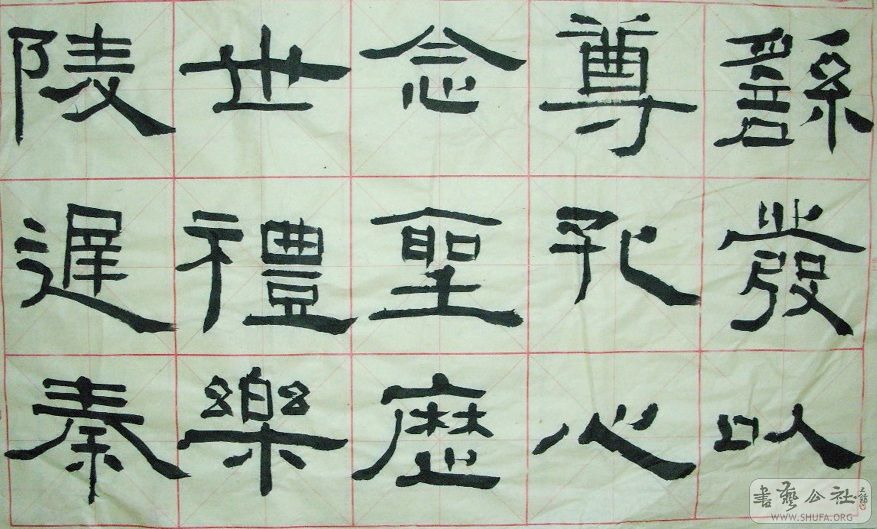 繇發以
尊孔心
念聖歷
世禮樂
陵遲秦
書藝公社
WWW.SHUFA.ORG